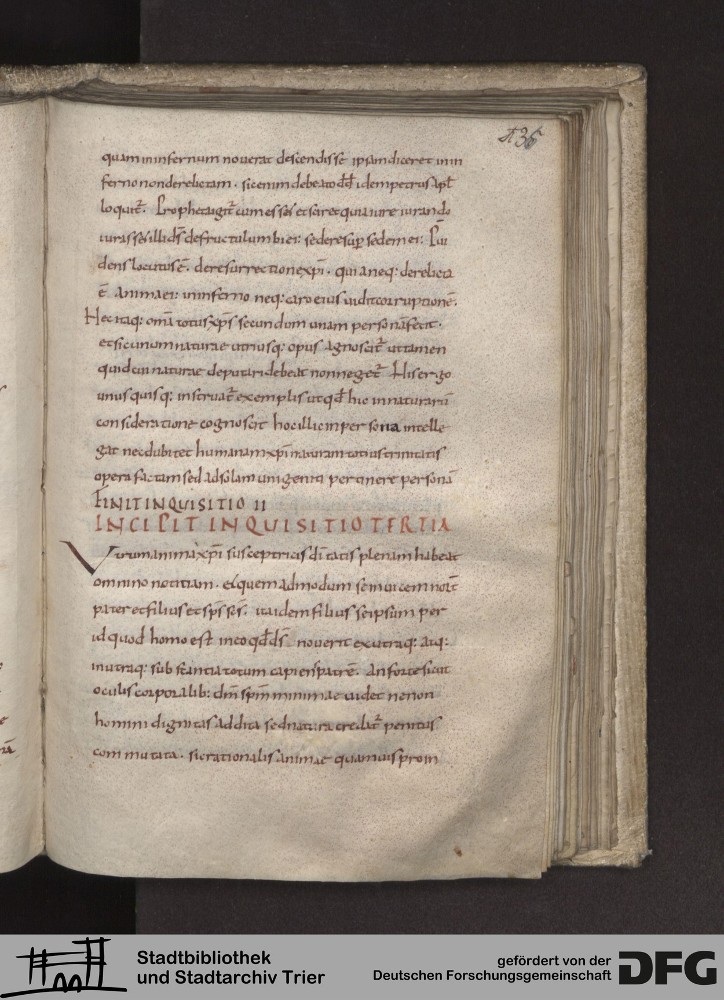 136
quam in infernum noverat descendisse ipsam diceret in in
ferno non derelictam. sic enim de beato dd idem petrus apl
loquit. Propheta igit cum esset et sciret quia iure iurando
iurasset illi ds de fructu lumbi ei: sedere sup sedem ei: Pui
dens locutus ē. de resurrectione xpi. quia neq: derelicta
ē anima ei: in inferno neq: caro eius vidit corruptionē.
Hec itaq: omā totus xps secundum unam personā fecit.
et sic unum naturae utriusq: opus agnoscit ut tamen
quid cui naturae deputari debeat non neget. His ergo
unus quisq: instruat exemplis ut qd hic in naturarū
consideratione cognoscit hoc illic in persona intelle
gat nec dubitet humanam xpi naturam totius trinitatis
opera factam sed ad solam unigeniti pertinere personā
FINIT INQUISITIO II
INCIPIT INQUISITIO TERTIA
Utrum anima xpi susceptricis diutatis plenam habeat
omnino notitiam. et quem ad modum se invicem novit
pater et filius et sps scs. ita idem filius se ipsum per
id quod homo est in eo qd ds noverit ex utraq: atq:
in utraq: substantia totum capiens patrē. An forte sicut
oculis corporalib: dm spm minimae videt ne non
homini dignitas addita sed natura credat penitus
commutata. sic rationalis animae quamvis pro in
Stadtbibliothek
und Stadtarchiv Trier
gefördert von der
Deutschen Forschungsgemeinschaft
DFG